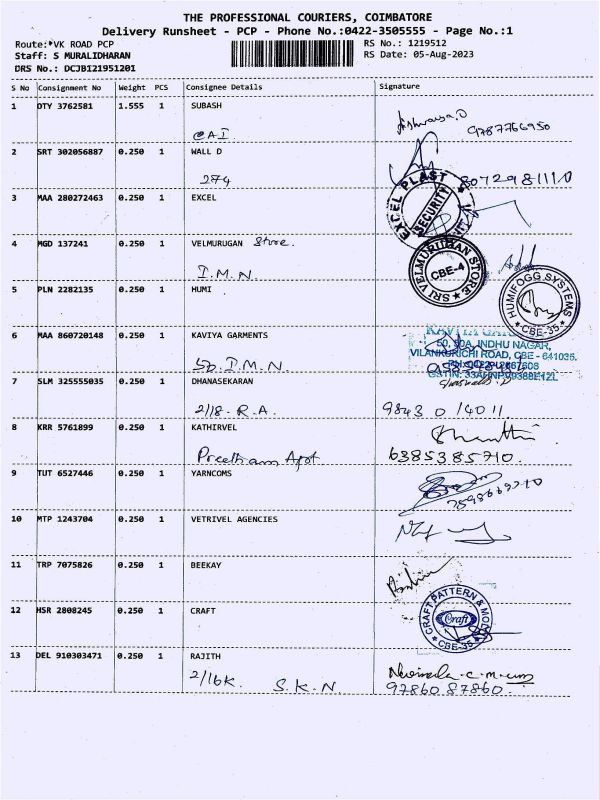 THE PROFESSIONAL COURIERS, COIMBATORE
Delivery Runsheet - PCP - Phone No.:0422-3505555 - Page No.:1
Route: VK ROAD PCP
RS No.: 1219512
Staff: S MURALIDHARAN
RS Date: 05-Aug-2023
DRS No.: DCJB121951201
S No Consignment No Weight PCS Consignee Details Signature
1 DTY 3762581 1.555 1 SUBASH
CAI
9787766950
2 SRT 302056887 0.250 1 WALL D
274
8072981110
3 MAA 280272463 0.250 1 EXCEL
EXCEL PLAST
SECURITY
4 MGD 137241 0.250 1 VELMURUGAN Store.
I.M.N.
SRI VELMURUHAN STORE
CBE-4
5 PLN 2282135 0.250 1 HUMI
HUMIFOGG SYSTEMS
CBE-35
6 MAA 860720148 0.250 1 KAVIYA GARMENTS
50, I.M.N.
50, 50A, INDHU NAGAR,
VILANKURICHI ROAD, CBE - 641035.
7 SLM 325555035 0.250 1 DHANASEKARAN
2/18- R.A.
9843014011.
8 KRR 5761899 0.250 1 KATHIRVEL
Preetham Apt
6385385710.
9 TUT 6527446 0.250 1 YARNCOMS
10 MTP 1243704 0.250 1 VETRIVEL AGENCIES
11 TRP 7075826 0.250 1 BEEKAY
12 HSR 2808245 0.250 1 CRAFT
CRAFT PATTERN &
Craft
CBE-35
13 DEL 910303471 0.250 1 RAJITH
2/16K. S.K.N.
97860 87860.